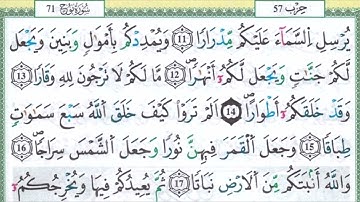 حزب 57 سورة نوح 71
يُرْسِلِ السَّمَآءَ عَلَيْكُم مِّدْرَارًا ⑪ وَيُمْدِدْكُم بِأَمْوَٰلٍ وَبَنِينَ وَيَجْعَل
لَّكُمْ جَنَّٰتٍ وَيَجْعَل لَّكُمُۥٓ أَنْهَٰرًا ⑫ مَّا لَكُمْ لَا تَرْجُونَ لِلَّهِ وَقَارًا ⑬
وَقَدْ خَلَقَكُمُۥٓ أَطْوَارًا ⑭ أَلَمْ تَرَوْا۟ كَيْفَ خَلَقَ ٱللَّهُ سَبْعَ سَمَٰوَٰتٍ
طِبَاقًا ⑮ وَجَعَلَ ٱلْقَمَرَ فِيهِنَّ نُورًا وَجَعَلَ ٱلشَّمْسَ سِرَاجًا ⑯
وَٱللَّهُ أَنۢبَتَكُم مِّنَ ٱلْأَرْضِ نَبَاتًا ⑰ ثُمَّ يُعِيدُكُمْ فِيهَا وَيُخْرِجُكُمُۥٓ